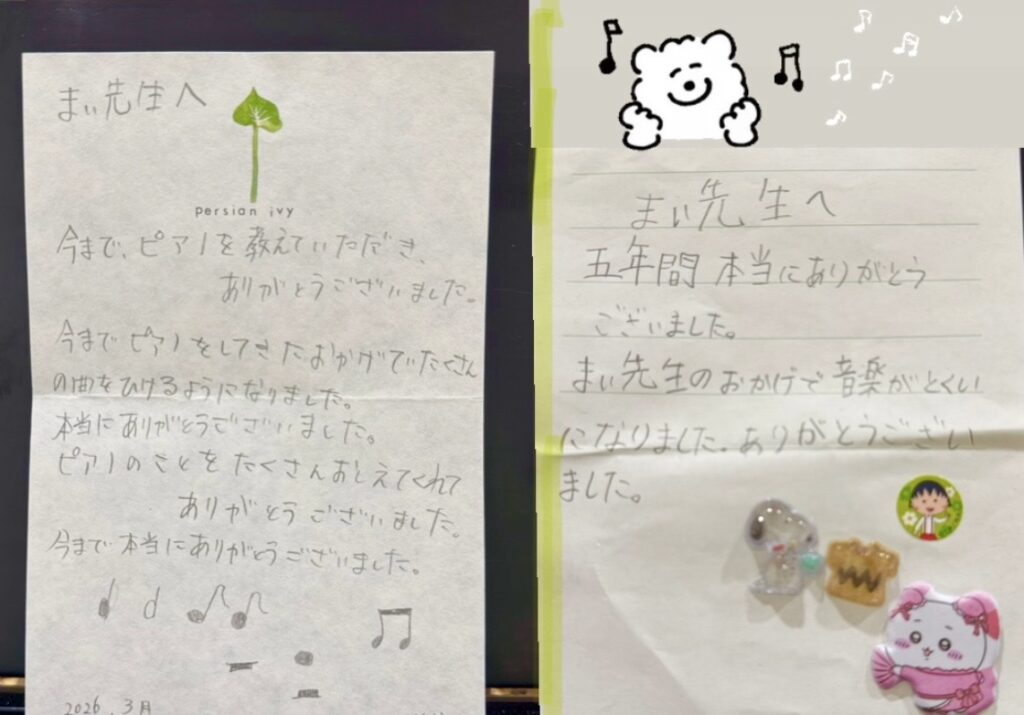 まい先生へ
persian ivy
今まで、ピアノを教えていただき、
ありがとうございました。
今までピアノをしてきたおかげでたくさん
の曲をひけるようになりました。
本当にありがとうございました。
ピアノのことをたくさんおしえてくれて
ありがとうございました。
今まで本当にありがとうございました。
2026.3月
まい先生へ
五年間本当にありがとう
ございました。
まい先生のおかげで音楽がとくい
になりました。ありがとうござい
ました。